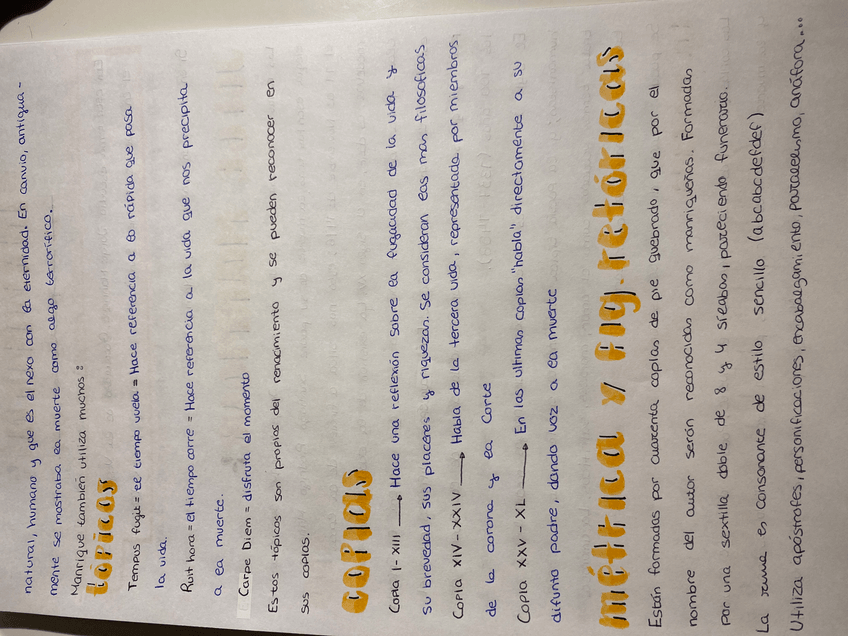 natural, humano y que es el nexo con la eternidad. En canvio, antigua-
mente se mostraba la muerte como algo terrorífico.
Manrique también utiliza muchos:
tópicos
Tempus fugit = el tiempo vuela = Hace referencia a lo rápida que pasa
la vida.
Ruit hora = el tiempo corre = Hace referencia a la vida que nos precipita
a la muerte.
Carpe Diem = disfruta el momento
Estos tópicos son propios del renacimiento y se pueden reconocer en
sus coplas.
coplas
Copla I-XIII → Hace una reflexión sobre la fugacidad de la vida y
su brevedad, sus placeres y riquezas. Se consideran las más filosoficas
Copla XIV-XXIV → Habla de la tercera vida, representada por miembros
de la corona y la Corte
Copla XXV-XL → En las ultimas coplas "habla" directamente a su
difunto padre, dando voz a la muerte
métrica y fig. retóricas
Están formadas por cuarenta coplas de pie quebrado, que por el
nombre del autor serán reconocidas como manriqueñas. Formadas
por una sextilla doble de 8 y 4 sílabas, pareciendo funerario.
La rima es consonante de estilo sencillo (abcabcdefdef)
Utiliza apóstrofes, personificaciones, encabalgamiento, paralelismo, anáfora...